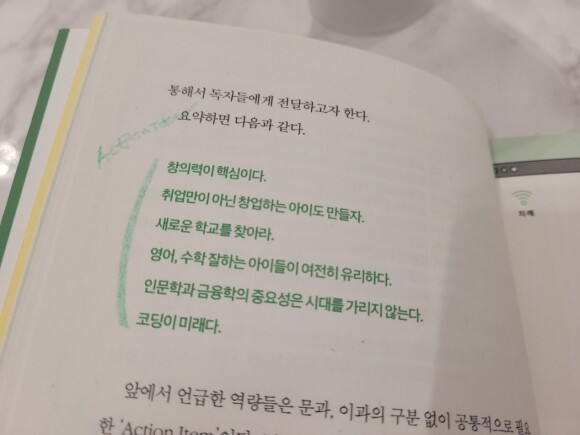 통해서 독자들에게 전달하고자 한다.
요약하면 다음과 같다.
Action
창의력이 핵심이다.
취업만이 아닌 창업하는 아이도 만들자.
새로운 학교를 찾아라.
영어, 수학 잘하는 아이들이 여전히 유리하다.
인문학과 금융학의 중요성은 시대를 가리지 않는다.
코딩이 미래다.
앞에서 언급한 역량들은 문과, 이과의 구분 없이 공통적으로 필요
한 'Action Item'이다
차례